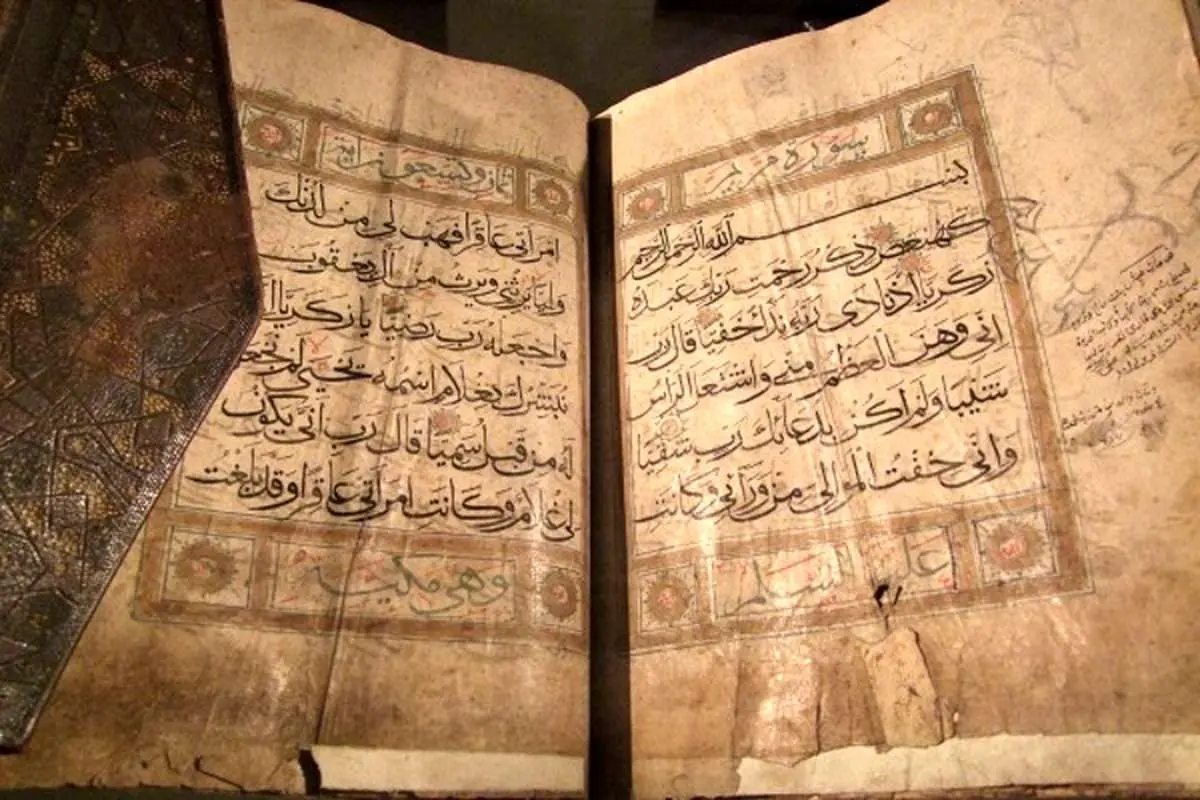 سورة مريم
بسم الله الرحمن الرحيم
كهيعص ذكر رحمت ربك عبده
زكريا اذ نادى ربه نداء خفيا قال رب
اني وهن العظم مني واشتعل الراس
شيبا ولم اكن بدعائك رب شقيا
واني خفت الموالي من ورائي وكانت
عليها السلم
ثمان وتسعون اية
امراتي عاقرا فهب لي من لدنك
وليا يرثني ويرث من ال يعقوب
واجعله رب رضيا يا زكريا انا
نبشرك بغلام اسمه يحيى لم نجعل
له من قبل سميا قال رب انى يكون
لي غلام وكانت امراتي عاقرا وقد بلغت
وهي مكية